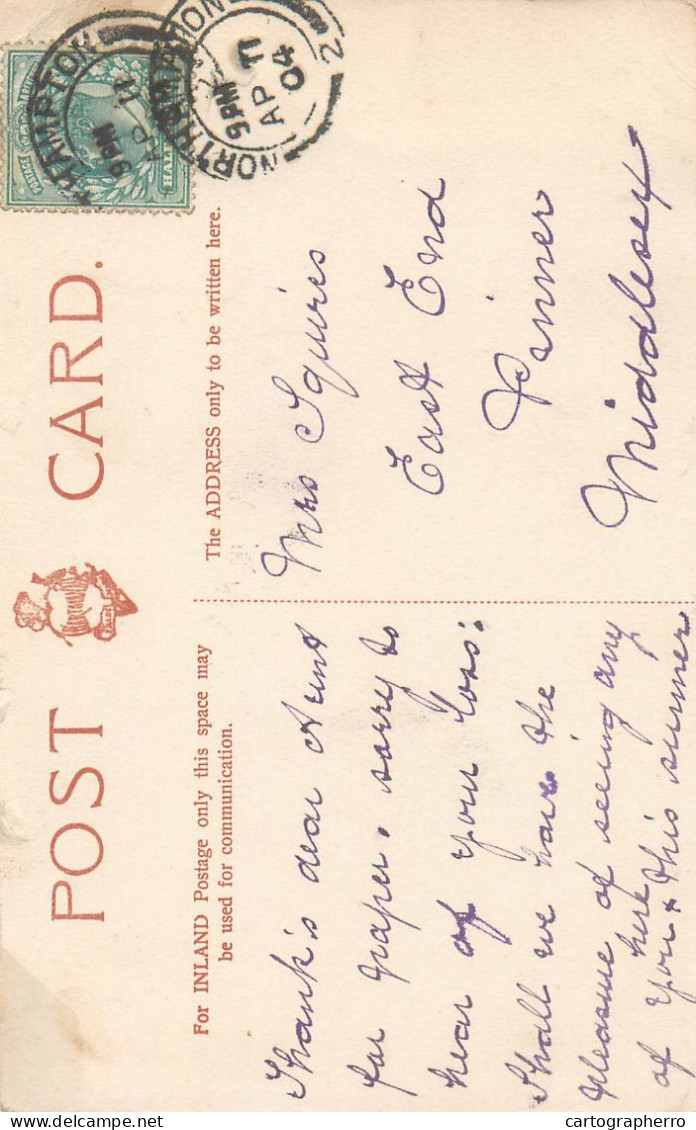 POST CARD.
For INLAND Postage only this space may
be used for communication.
The ADDRESS only to be written here.
Thank's dear Aunt
for paper. sorry to
hear of your loss:
Shall we have the
pleasure of seeing any
of you here this summer
Mrs Squires
East End
Pinner
Middlesex
NORTHAMPTON
9 PM
AP 11
04
2
HAMPTON
9 PM
AP 11
POSTAGE
cartographerro